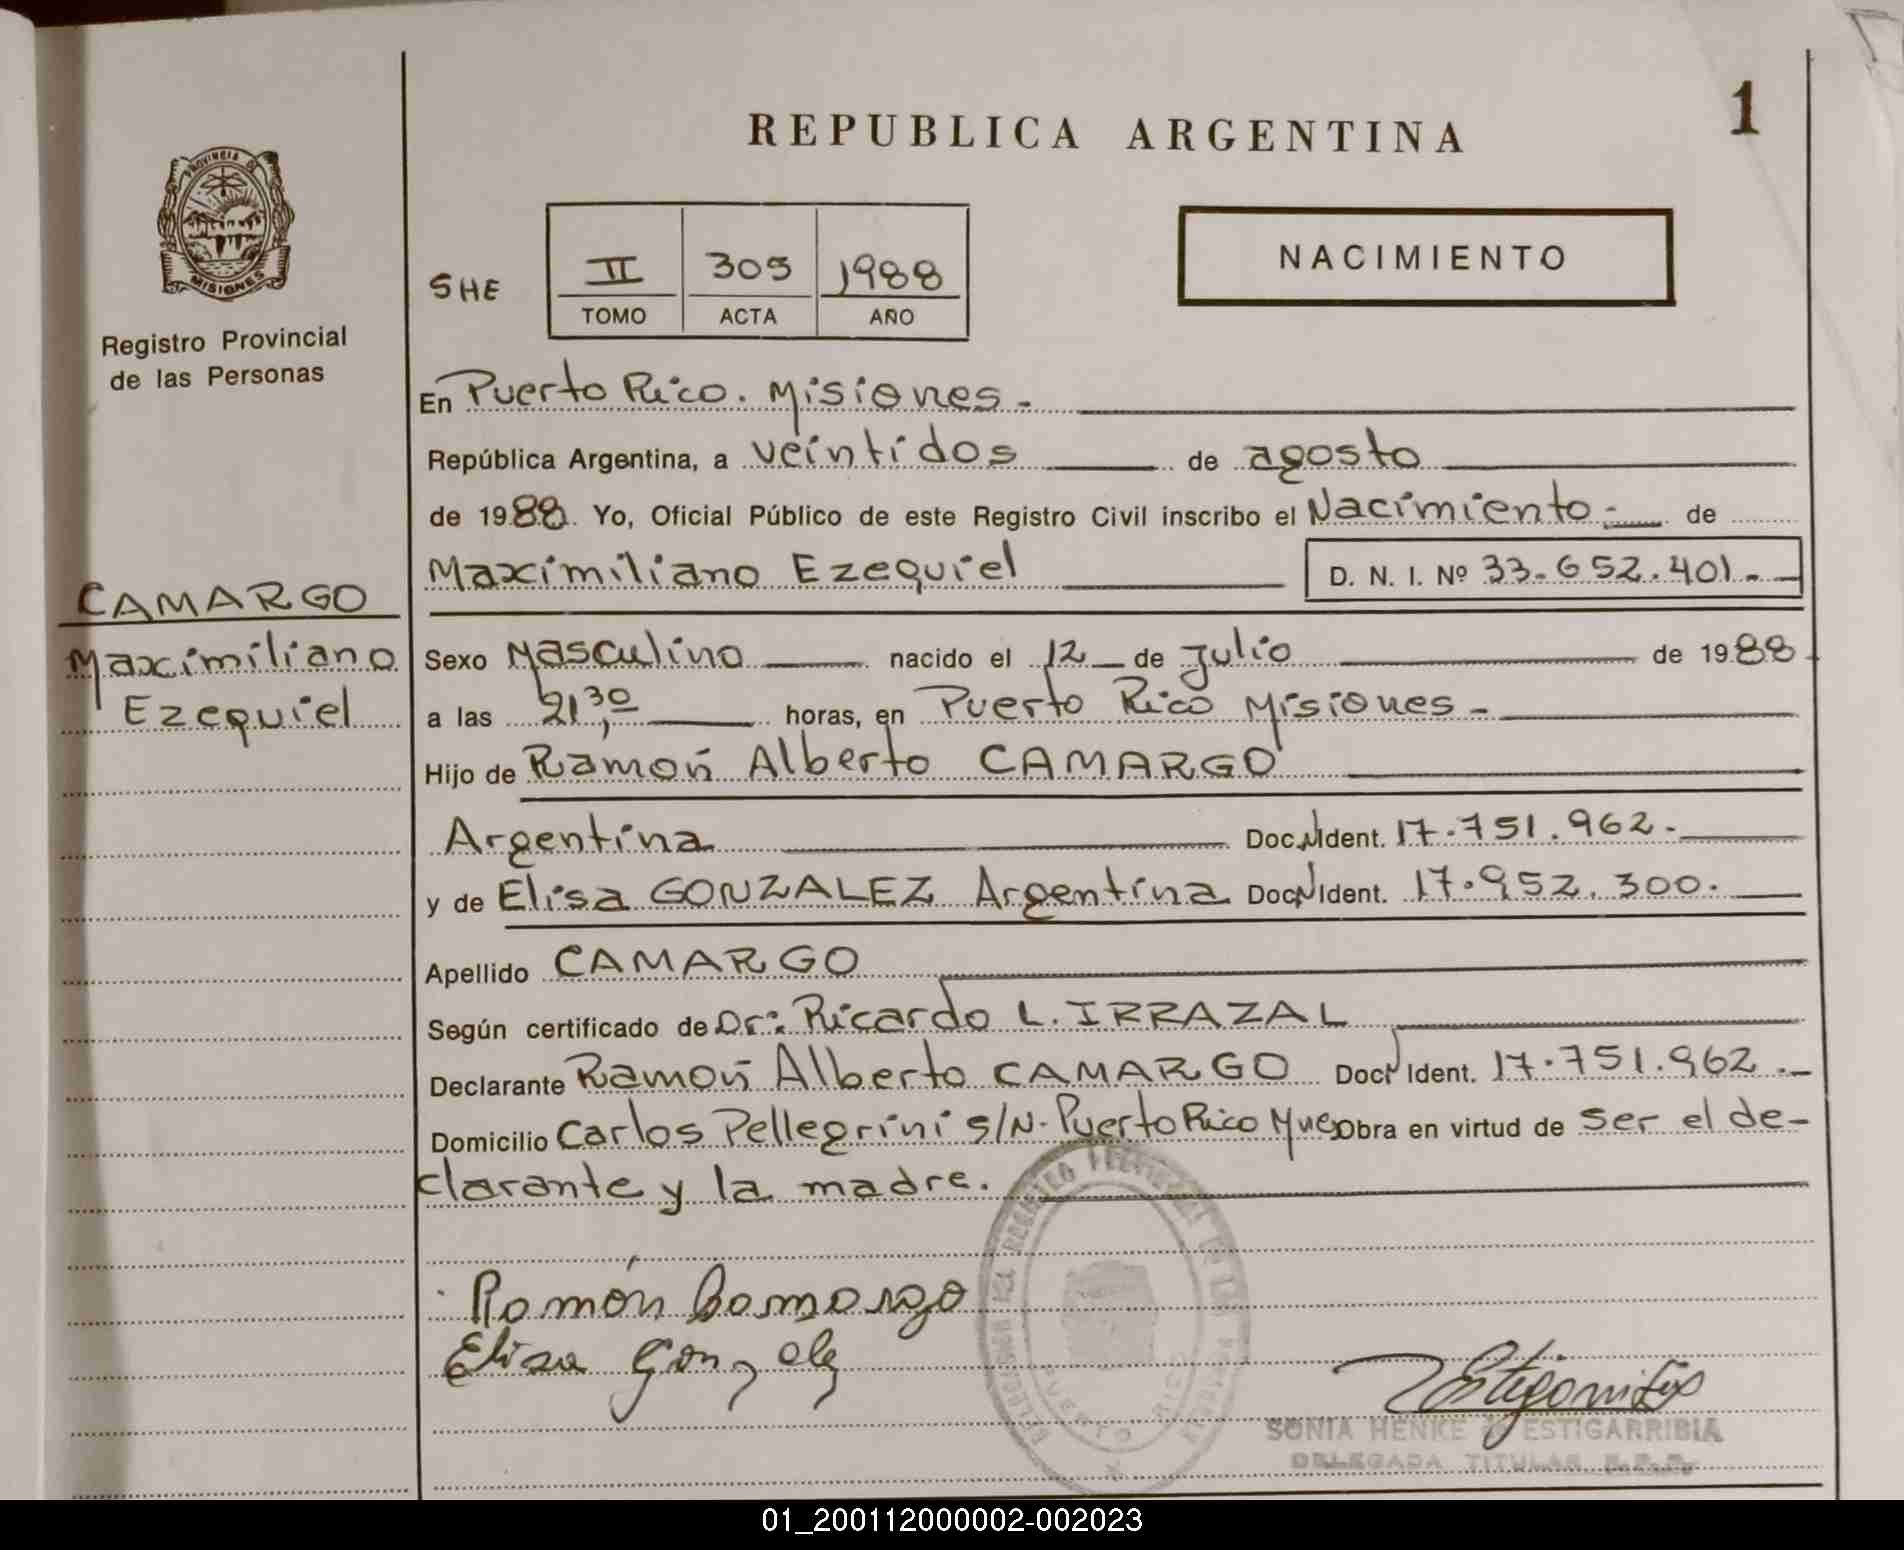 REPUBLICA ARGENTINA
1
PROVINCIA DE
MISIONES
Registro Provincial
de las Personas
SHE
II 305 1988
TOMO ACTA AÑO
NACIMIENTO
En Puerto Rico. Misiones -
República Argentina, a veintidos de agosto
de 1988. Yo, Oficial Público de este Registro Civil inscribo el Nacimiento - de
Maximiliano Ezequiel D. N. I. Nº 33.652.401.-
CAMARGO
Maximiliano
Ezequiel
Sexo Masculino nacido el 12 de Julio de 1988
a las 21,30 horas, en Puerto Rico Misiones -
Hijo de Ramón Alberto CAMARGO
Argentina Doc. N Ident. 17.751.962.-
y de Elisa GONZALEZ Argentina Doc. N Ident. 17.952.300.
Apellido CAMARGO
Según certificado de Dr: Ricardo L. IRRAZAL
Declarante Ramón Alberto CAMARGO Doc. N Ident. 17.751.962.-
Domicilio Carlos Pellegrini s/N. Puerto Rico Mnes Obra en virtud de ser el de-
clarante y la madre.
Ramón Camargo
Elisa Gonzalez
PUERTO RICO
SONIA HENKE de ESTIGARRIBIA
DELEGADA TITULAR R.P.P.
01_200112000002-002023